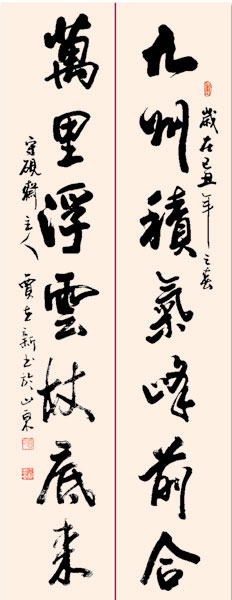 九州積氣峰前合
歲在己丑年之春
萬里浮雲杖底來
守硯齋主人
賈在新书於山東